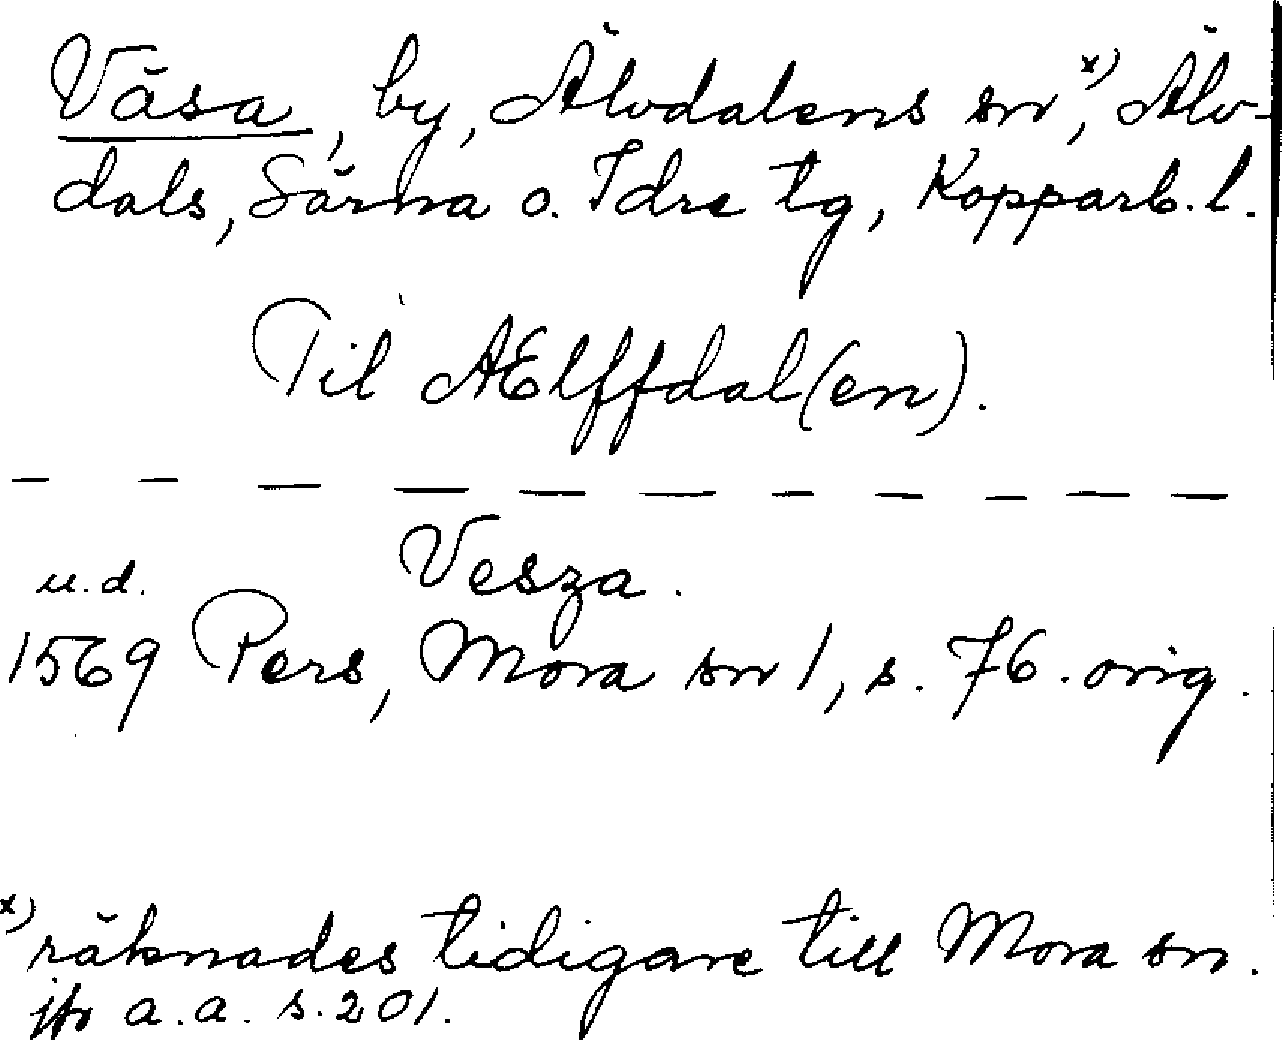 Väsa, by, Älvdalens sn x), Älv-
dals, Särna o. Idre tg, Kopparb. l.
Til AElffdal(en).
Vesza.
u.d.
1569 Pers, Mora sn 1, s. 76. orig.
x) räknades tidigare till Mora sn.
jfr a.a. s. 201.